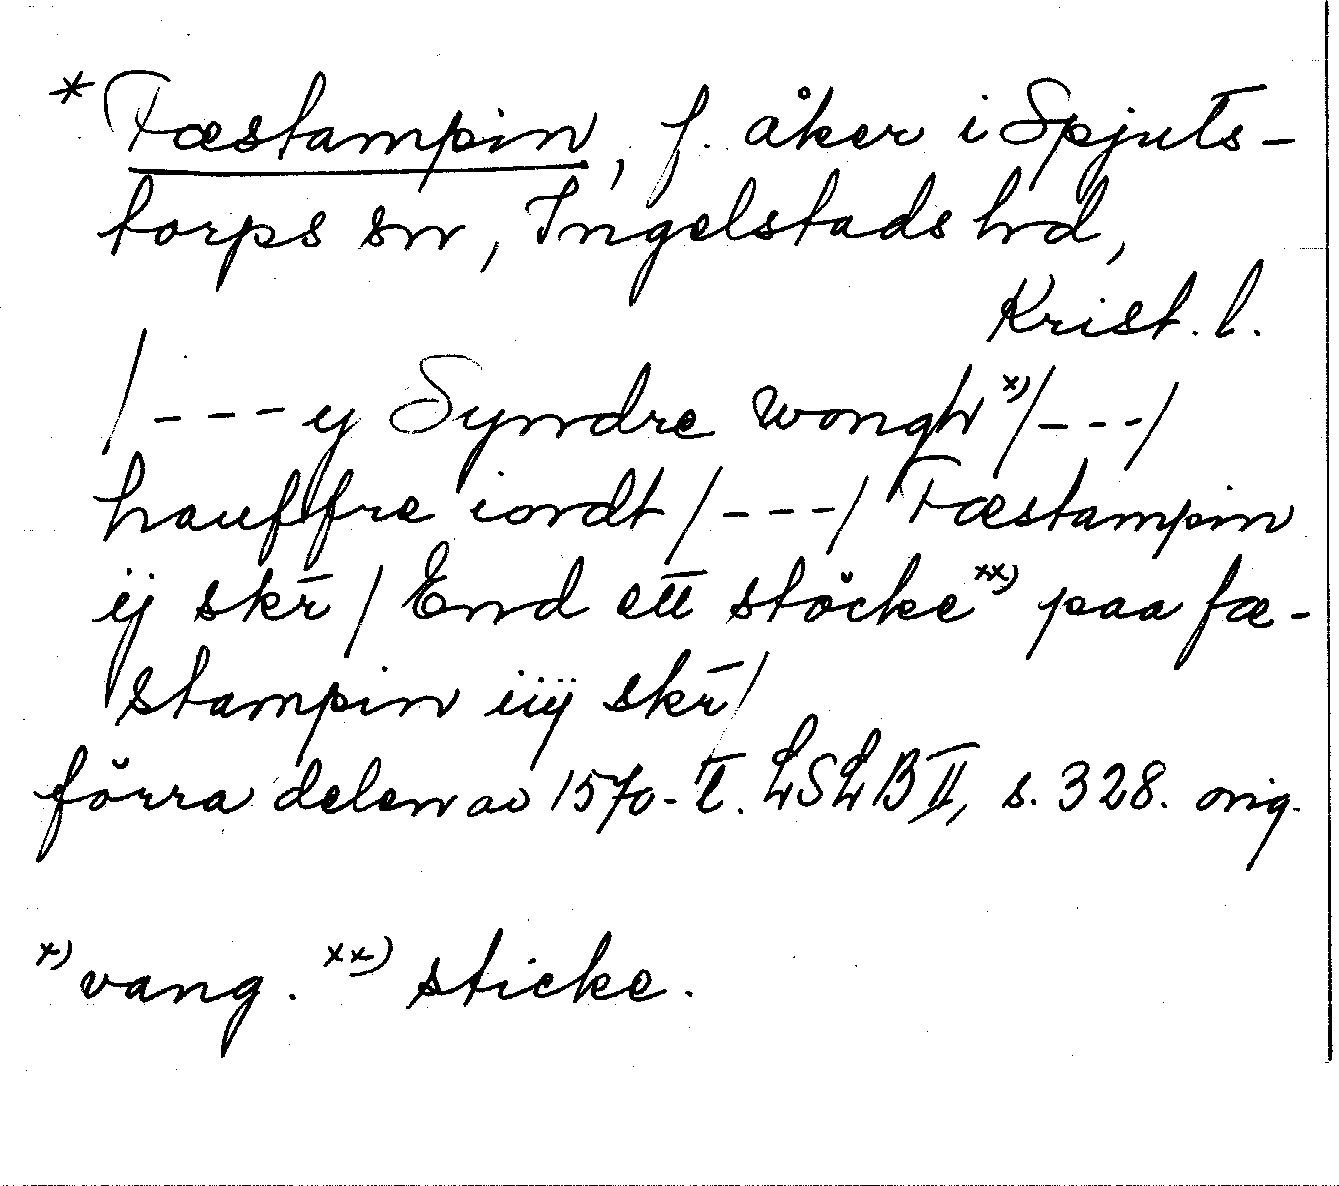 * Fæstampin, f. åker i Spjuts-
torps sn, Ingelstads hd,
Krist. l.
/---y Syndre wongh x)/---/
hauffre iordt /---/ Fæstampin
ij skr̄ / End ett stöcke xx) paa fæ-
stampin iiij skr̄/
förra delen av 1570-t. LSLB II, s. 328. orig.
x) vang. xx) sticke.